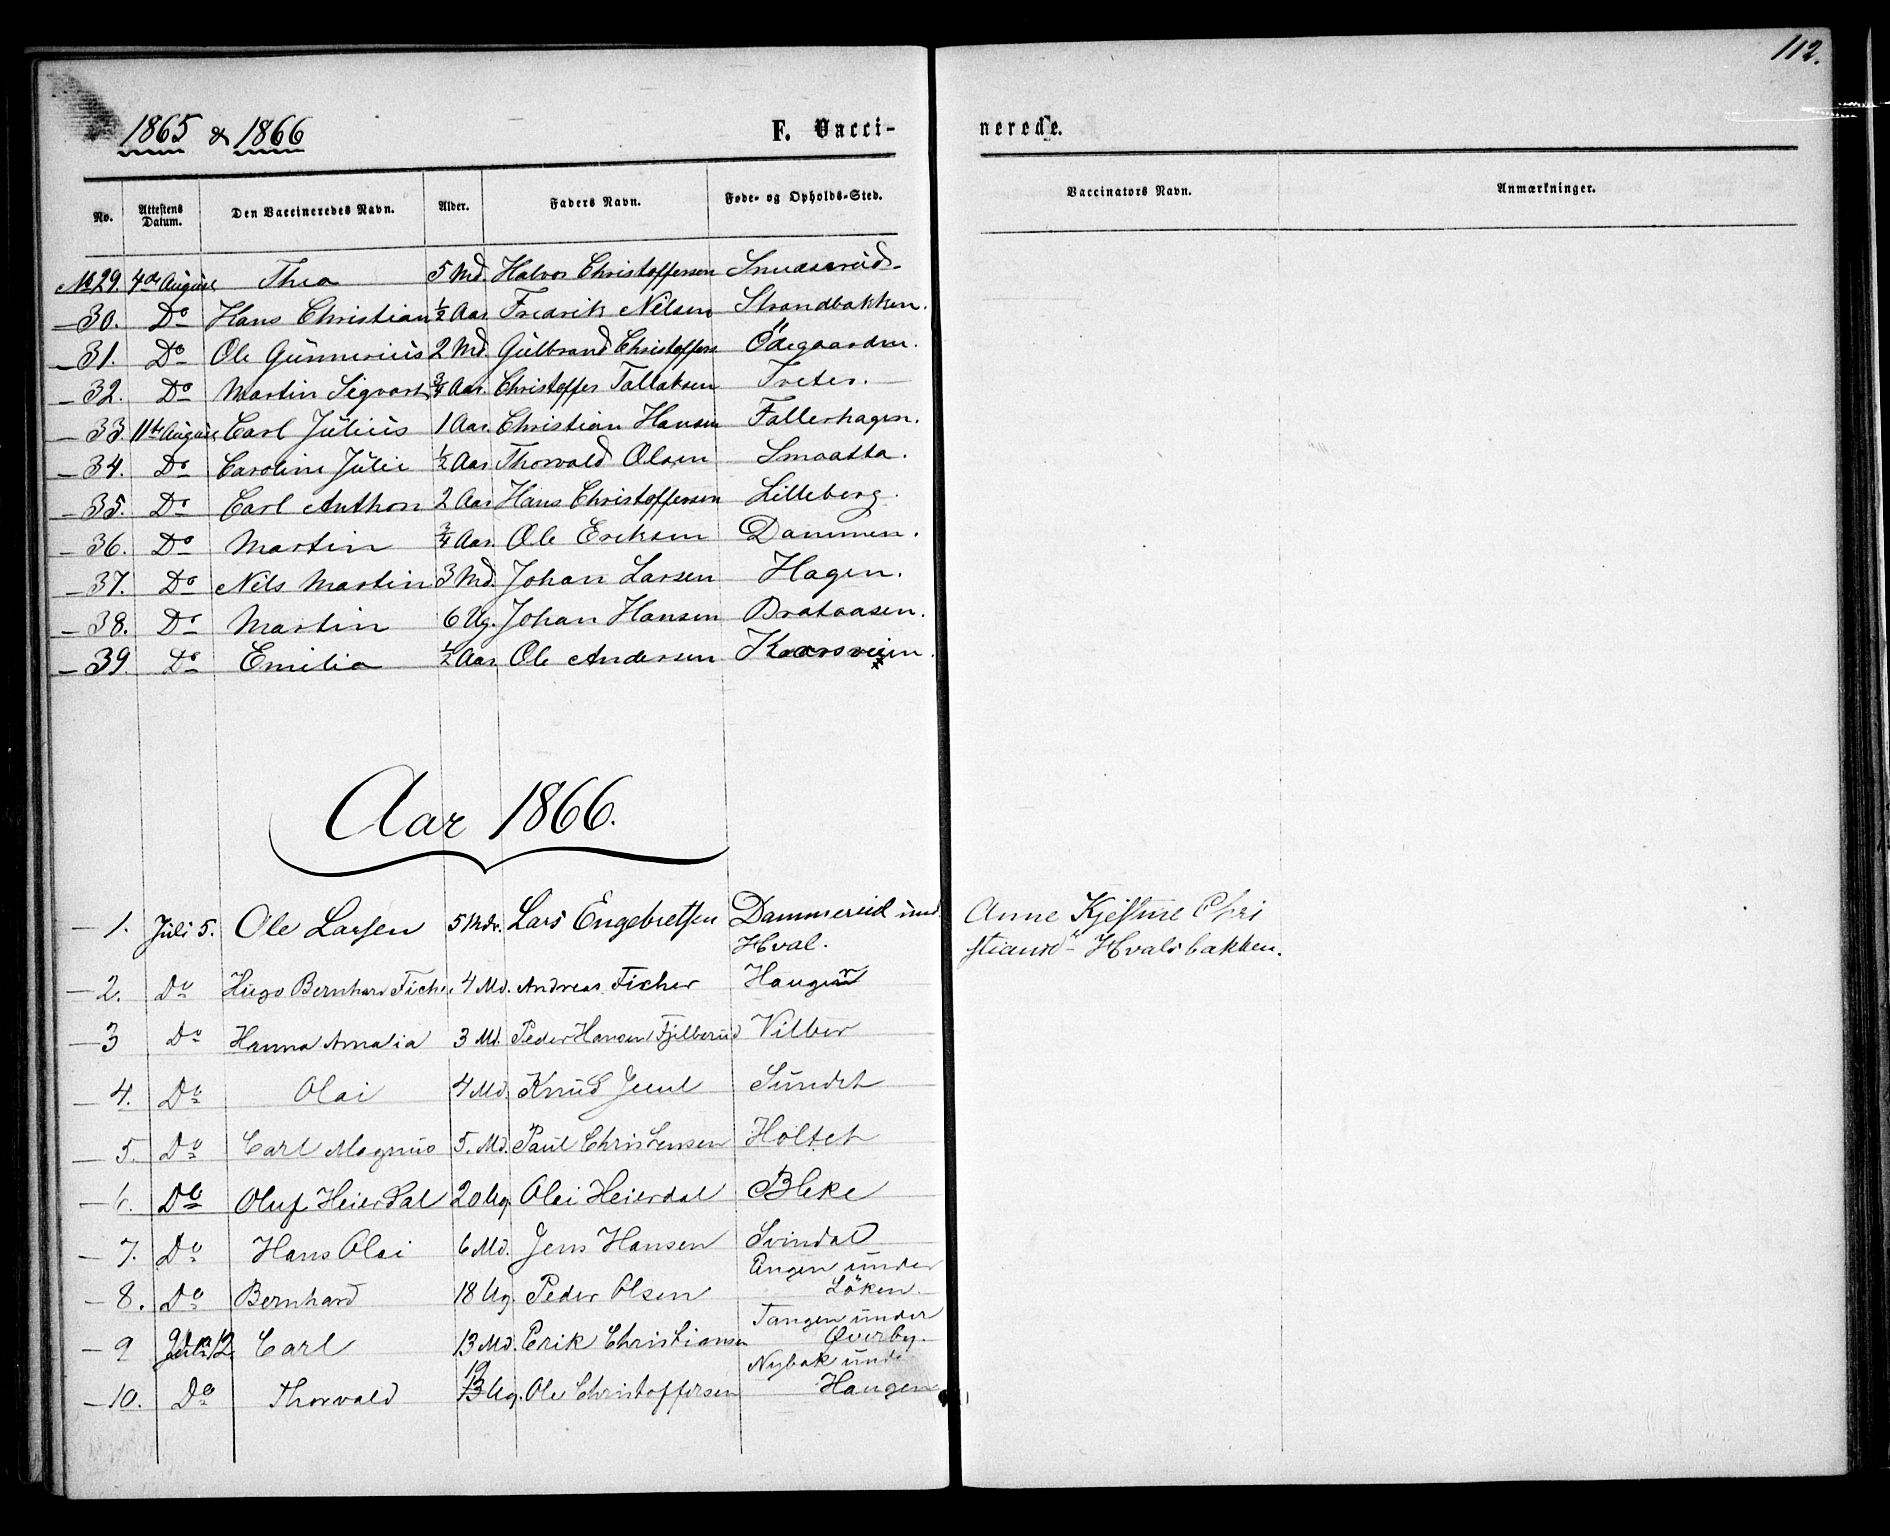 112.
1865 & 1866
F. Vacci-
nerede.
No. Attestens Datum. Den Vaccineredes Navn. Alder. Faders Navn. Føde- og Opholds-Sted. Vaccinators Navn. Anmærkninger.
No 29. 4de August Thea 5 Md. Halvor Christoffersen Smedsrud
— 30. Do Hans Christian ½ Aar Fredrik Nilsen Strandbakken.
— 31. Do Ole Gunnerius 2 Md. Gulbrand Christoffers Ödegaarden.
— 32. Do Martin Sigvart ¾ Aar. Christoffer Tallaksen Treter.
— 33. 11te August Carl Julius 1 Aar. Christian Hansen Fallerhagen.
— 34. Do Caroline Julie ½ Aar Thorvald Olsen Smaatta.
— 35. Do Carl Anthon 2 Aar Hans Christoffersen Lilleberg.
— 36. Do Martin ¾ Aar. Ole Eriksen Dammen.
— 37. Do Nils Martin 3 Md. Johan Larsen Hagen.
— 38. Do Martin 6 Ug. Johan Hansen Brataasen.
— 39. Do Emilia ½ Aar Ole Andersen Korsveien.
Aar 1866.
— 1. Juli 5. Ole Larsen 5 Mdr. Lars Engebretsen Dammereid und. Anne Kjestine Chri
Hval. stiansd - Hvalsbakken.
— 2. Do Hugo Bernhard Ficher 4 Md. Andreas Ficher Haugen
— 3 Do Hanna Amalia 3 Md. Peder Hansen Fjelberud Vilber
— 4. Do Olai 4 Md. Knud Juul Sundet
— 5. Do Carl Magnus 5. Md. Paul Christensen Holtet
— 6. Do Oluf Heierdal 20 Ug. Olai Heierdal Bleke
— 7. Do Hans Olai 6 Md. Jens Hansen Svindal
Engen under
— 8. Do Bernhard 18 Ug. Peder Olsen Löken.
Tangen under
— 9 Juli 12. Carl 13 Md. Erik Christiansen Øverby.
19 Nybak unde
— 10. Do Thorvald 13 Ug. Ole Christoffersen Haugen